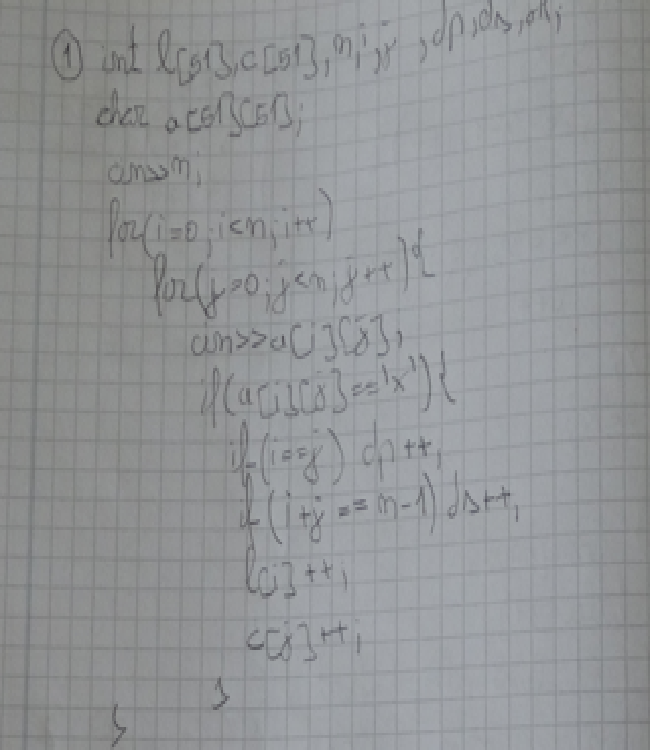 ① int l[51],c[51],n,i,j,dp,ds,ok;
char a[51][51];
cin>>n;
for(i=0;i<n;i++)
for(j=0;j<n;j++){
cin>>a[i][j];
if(a[i][j]=='x'){
if(i==j) dp++;
if(i+j==n-1) ds++;
l[i]++;
c[j]++;
}
}